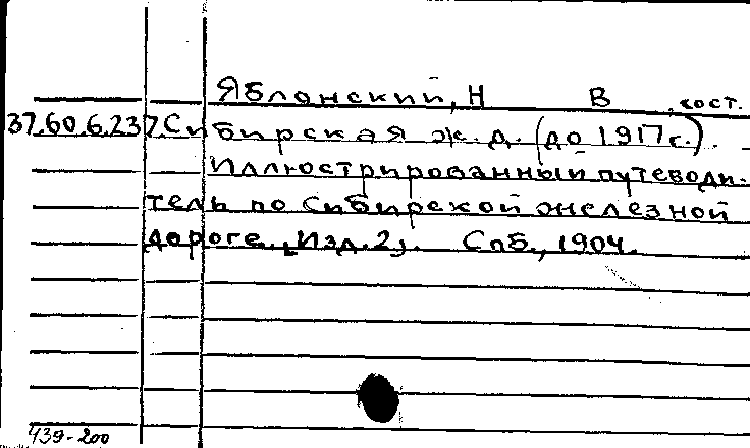 Яблонский, Н В , сост.
37.60.6.237. Сибирская ж. д. (до 1917 г.).
Иллюстрированный путеводи-
тель по Сибирской железной
дороге. Изд. 2, . Спб., 1904.
439-200